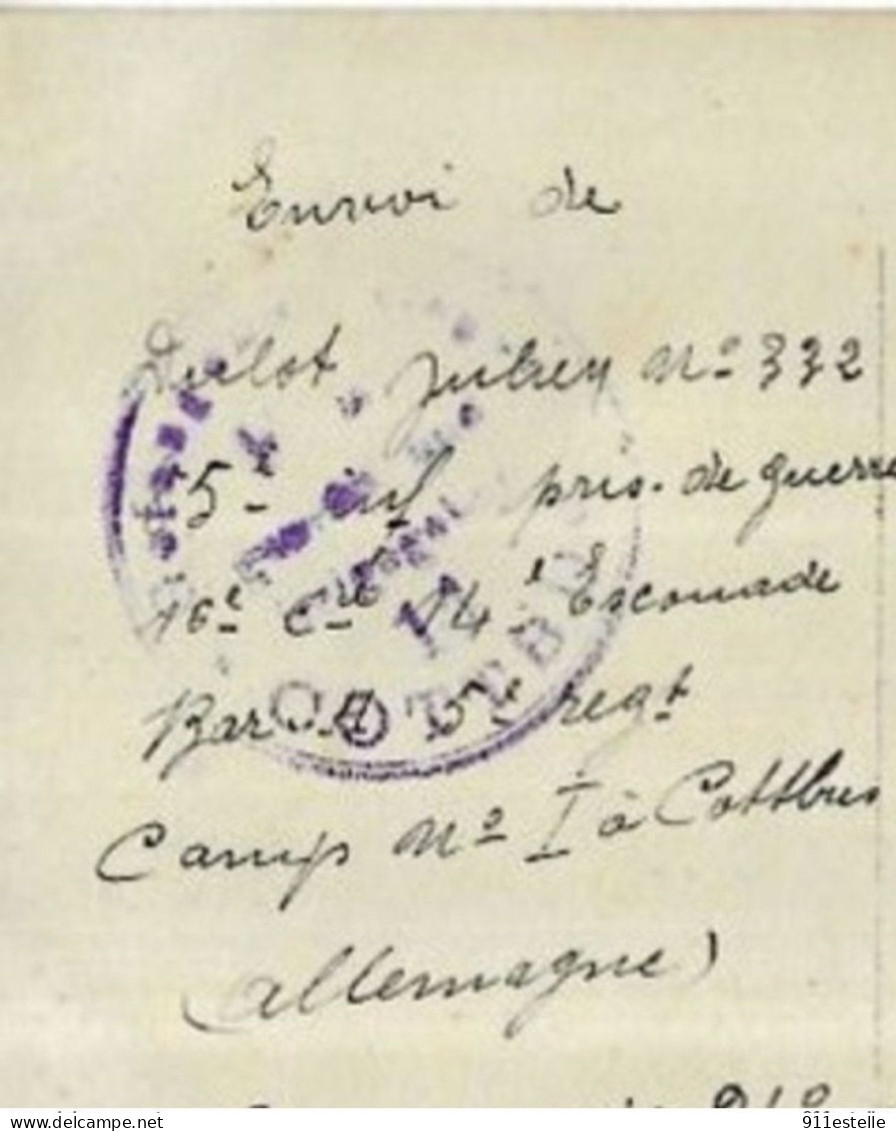 Envoi de
Dulot Julien Nº 332
5e inf pris. de guerre
16e Cie 14e Escouade
Bar. A 5e regt
Camp Nº I à Cottbus
(Allemagne)
COTTBUS
Delcampe.net
911estelle